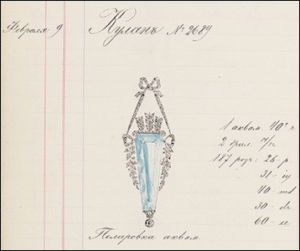 Февраля 9
Кулонъ № 2689
1 аквам. 40 - 
2 брил.
187 роз. 26 - р.
31 -
40 -
30 -
60 -
Полировка аквам.